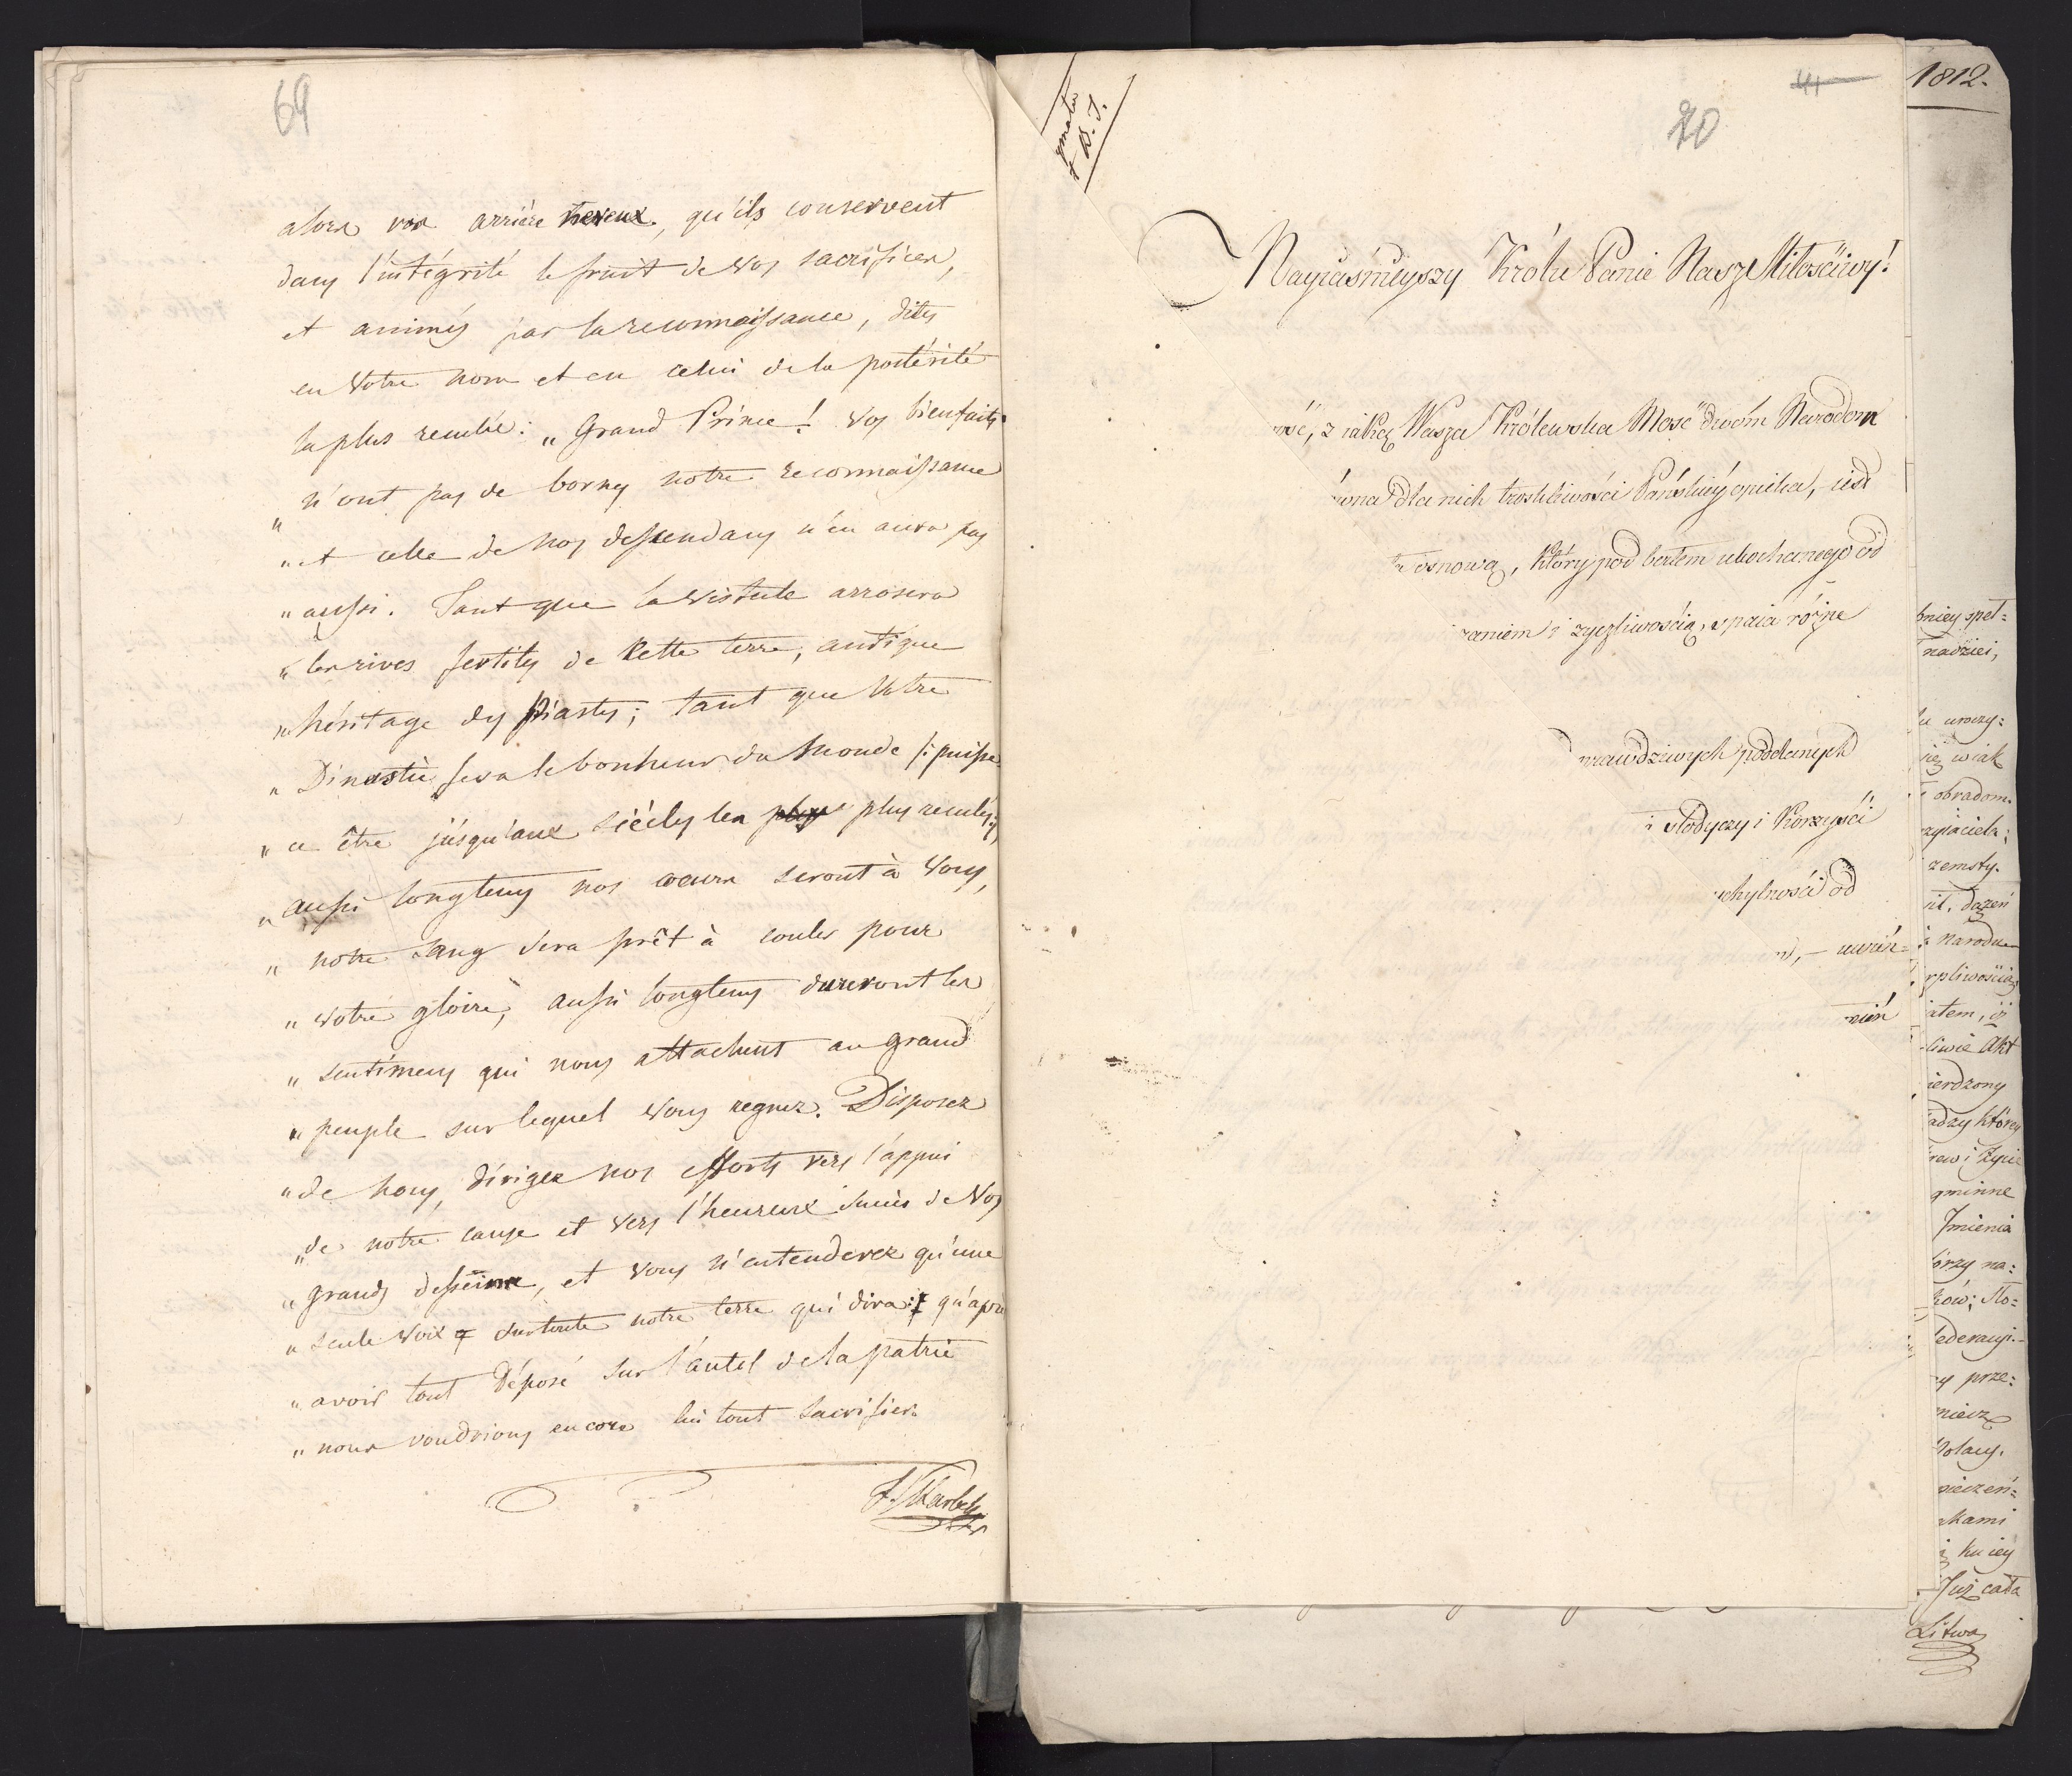 69
alors vos arrière neveux, qu'ils conservent
dans l'intégrité le fruit de Vos sacrifices,
et animés par la reconnaissance, dites
en Votre nom et en celui de la postérité
la plus reculée: „Grand Prince! Vos bienfaits
„n'ont pas de bornes notre reconnaissance
„et celle de nos descendans n'en aura pas
„aussi. Tant que la Vistule arrosera
„les rives fertiles de Cette terre, antique
„héritage des Piastes; tant que Votre
„Dinastie fera le bonheur du Monde /:puisse
„ce être jusqu'aux siécles les plus plus reculés:/
„aussi longtems nos coeurs seront à Vous,
„notre sang sera prêt à couler pour
„Votre gloire, aussi longtems dureront les
„sentimens qui nous attachent au grand
„peuple sur lequel Vous regnez. Disposez
„de nous, dirigez nos efforts vers l'appui
„de notre cause et vers l'heureux succès de Vos
„grands desseins, et Vous n'entenderez qu'une
„seule Voix sur toute notre terre qui dira: qu'après
„avoir tout déposé sur l'autel de la patrie
„nous voudrions encore lui tout sacrifier.
41
20
Nayiaśnieyszy Królu Panie Nasz Miłościwy!
ość, z iaką Wasza Królewska Mość dwóm Narodom
ona dla nich troskliwości Pańskiey opieka, – iest
osnową, który pod berłem ukochanego od
zaniem i życzliwością, spaia różne
prawdziwych poddanych
i słodyczy i korzyści
chylności od
, – uwień=
nień
1812.
bniey speł=
nadziei,
uroczy=
wiak
obradom.
zyiaciela;
zemsty.
ił, dążeń
Narodu
rpliwością
atem, iż
liwie Akt
ierdzony
adzy którey
rew i życie
gminne
Imienia
órzy na=
ków; Sło=
federacyi.
y prze=
niecz
Polacy.
pieczeń=
akami
ku iey
Już cała
Litwa